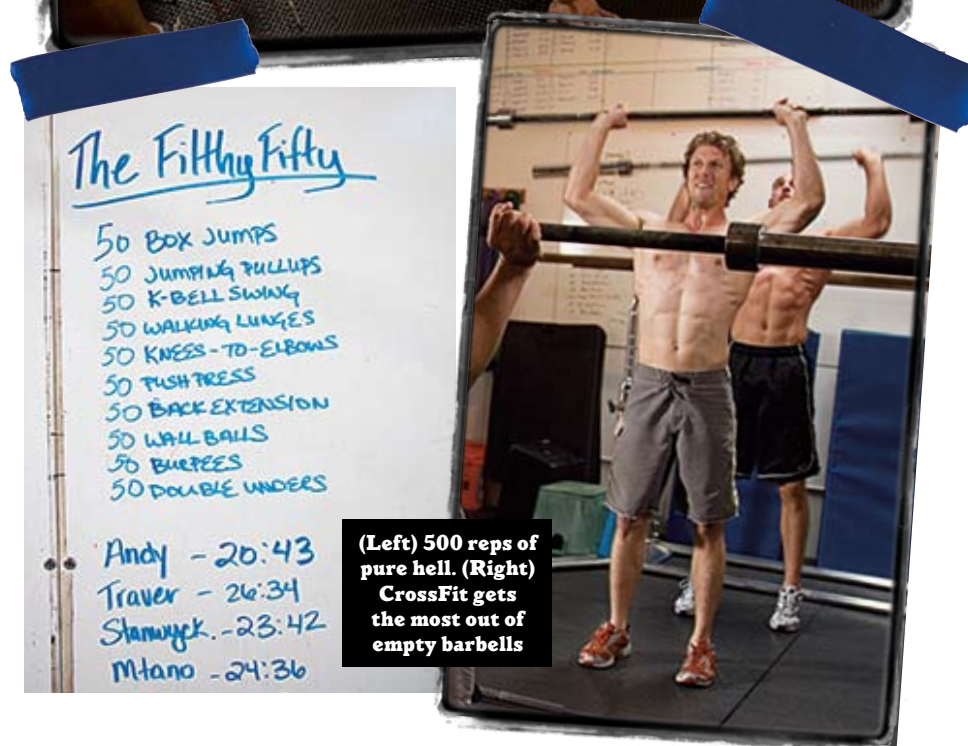 The Filthy Fifty
50 BOX JUMPS
50 JUMPING PULLUPS
50 K-BELL SWING
50 WALKING LUNGES
50 KNEES-TO-ELBOWS
50 PUSH PRESS
50 BACK EXTENSION
50 WALL BALLS
50 BURPEES
50 DOUBLE UNDERS
Andy - 20:43
Traver - 26:34
Stanwyck. - 23:42
Mtano - 24:36
(Left) 500 reps of
pure hell. (Right)
CrossFit gets
the most out of
empty barbells